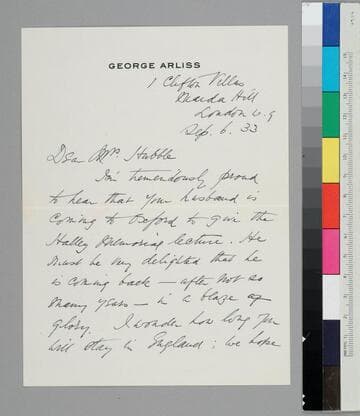 GEORGE ARLISS
1 Clifton Villas
Maida Hill
London W. 9
Sep. 6. 33
Dear Mrs. Hubble
I'm tremendously proud
to hear that your husband is
coming to Oxford to give the
Halley Memorial lecture. He
must be very delighted that he
is coming back — after not so
many years — in a blaze of
glory. I wonder how long you
will stay in England: we hope